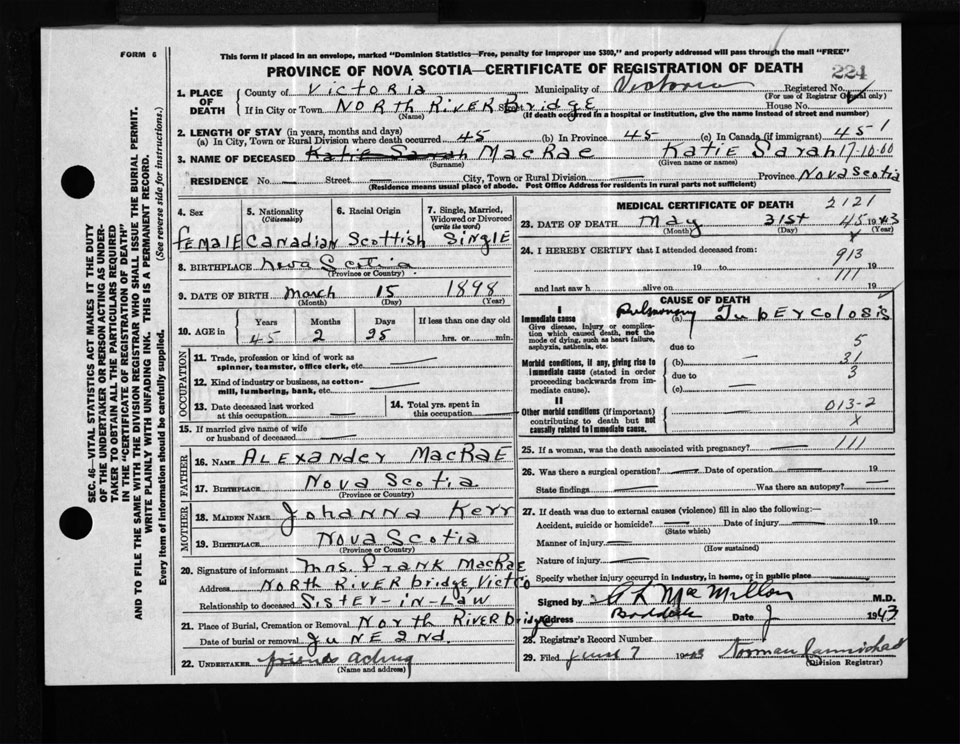 FORM 6
This form if placed in an envelope, marked "Dominion Statistics—Free, penalty for improper use $300," and properly addressed will pass through the mail "FREE"
PROVINCE OF NOVA SCOTIA—CERTIFICATE OF REGISTRATION OF DEATH
224
SEC. 46—VITAL STATISTICS ACT MAKES IT THE DUTY
OF THE UNDERTAKER OR PERSON ACTING AS UNDER-
TAKER TO OBTAIN ALL THE PARTICULARS REQUIRED
IN THE "CERTIFICATE OF REGISTRATION OF DEATH"
AND TO FILE THE SAME WITH THE DIVISION REGISTRAR WHO SHALL ISSUE THE BURIAL PERMIT.
WRITE PLAINLY WITH UNFADING INK. THIS IS A PERMANENT RECORD.
Every item of information should be carefully supplied. (See reverse side for instructions.)
1. PLACE OF DEATH
County of Victoria Municipality of Victoria Registered No.
(For use of Registrar General only)
If in City or Town NORTH RIVER Bridge Street House No.
(Name) (If death occurred in a hospital or institution, give the name instead of street and number)
2. LENGTH OF STAY (in years, months and days)
(a) In City, Town or Rural Division where death occurred 45 (b) In Province 45 (c) In Canada (if immigrant) 45-1
3. NAME OF DECEASED Katie Sarah MacRae Katie Sarah 17-10-00
(Surname) (Given name or names)
RESIDENCE No. — Street — City, Town or Rural Division — Province Nova Scotia
(Residence means usual place of abode. Post Office Address for residents in rural parts not sufficient)
4. Sex
5. Nationality (Citizenship)
6. Racial Origin
7. Single, Married, Widowed or Divorced (write the word)
FEMALE Canadian Scottish Single
8. BIRTHPLACE Nova Scotia
(Province or Country)
9. DATE OF BIRTH March 15 1898
(Month) (Day) (Year)
10. AGE in Years Months Days If less than one day old
45 2 25 hrs. or min.
OCCUPATION
11. Trade, profession or kind of work as
spinner, teamster, office clerk, etc. —
12. Kind of industry or business, as cotton-
mill, lumbering, bank, etc. —
13. Date deceased last worked
at this occupation —
14. Total yrs. spent in
this occupation —
15. If married give name of wife
or husband of deceased —
FATHER
16. NAME ALEXANDER MACRAE
17. BIRTHPLACE Nova Scotia
(Province or Country)
MOTHER
18. MAIDEN NAME Johanna Kerr
19. BIRTHPLACE Nova Scotia
(Province or Country)
20. Signature of informant Mrs. Frank MacRae
Address NORTH RIVER bridge, Vict Co
Relationship to deceased SISTER-IN-LAW
21. Place of Burial, Cremation or Removal North River bridge
Date of burial or removal JUNE 2nd.
22. UNDERTAKER friends acting
(Name and address)
MEDICAL CERTIFICATE OF DEATH 2121
23. DATE OF DEATH May 31st 45 1943
(Month) (Day) (Year)
x
24. I HEREBY CERTIFY that I attended deceased from:
913
19 to 19
111
and last saw h alive on 19
CAUSE OF DEATH
I
Immediate cause (a) Pulmonary Tubercolosis
Give disease, injury or complica-
tion which caused death, not the
mode of dying, such as heart failure,
asphyxia, asthenia, etc.
due to 5
Morbid conditions, if any, giving rise to
immediate cause (stated in order
proceeding backwards from im-
mediate cause).
(b) — 31
due to 3
(c) —
II
Other morbid conditions (if important)
contributing to death but not
causally related to immediate cause.
013-2
x
25. If a woman, was the death associated with pregnancy? — 111
26. Was there a surgical operation? — Date of operation — 19
State findings — Was there an autopsy? —
27. If death was due to external causes (violence) fill in also the following:—
Accident, suicide or homicide? — Date of injury — 19
(State which)
Manner of injury —
(How sustained)
Nature of injury —
Specify whether injury occurred in industry, in home, or in public place —
Signed by MacMillan M.D.
Address Baddeck Date 1943
28. Registrar's Record Number
29. Filed June 7 1943 Norman Carmichael
(Division Registrar)